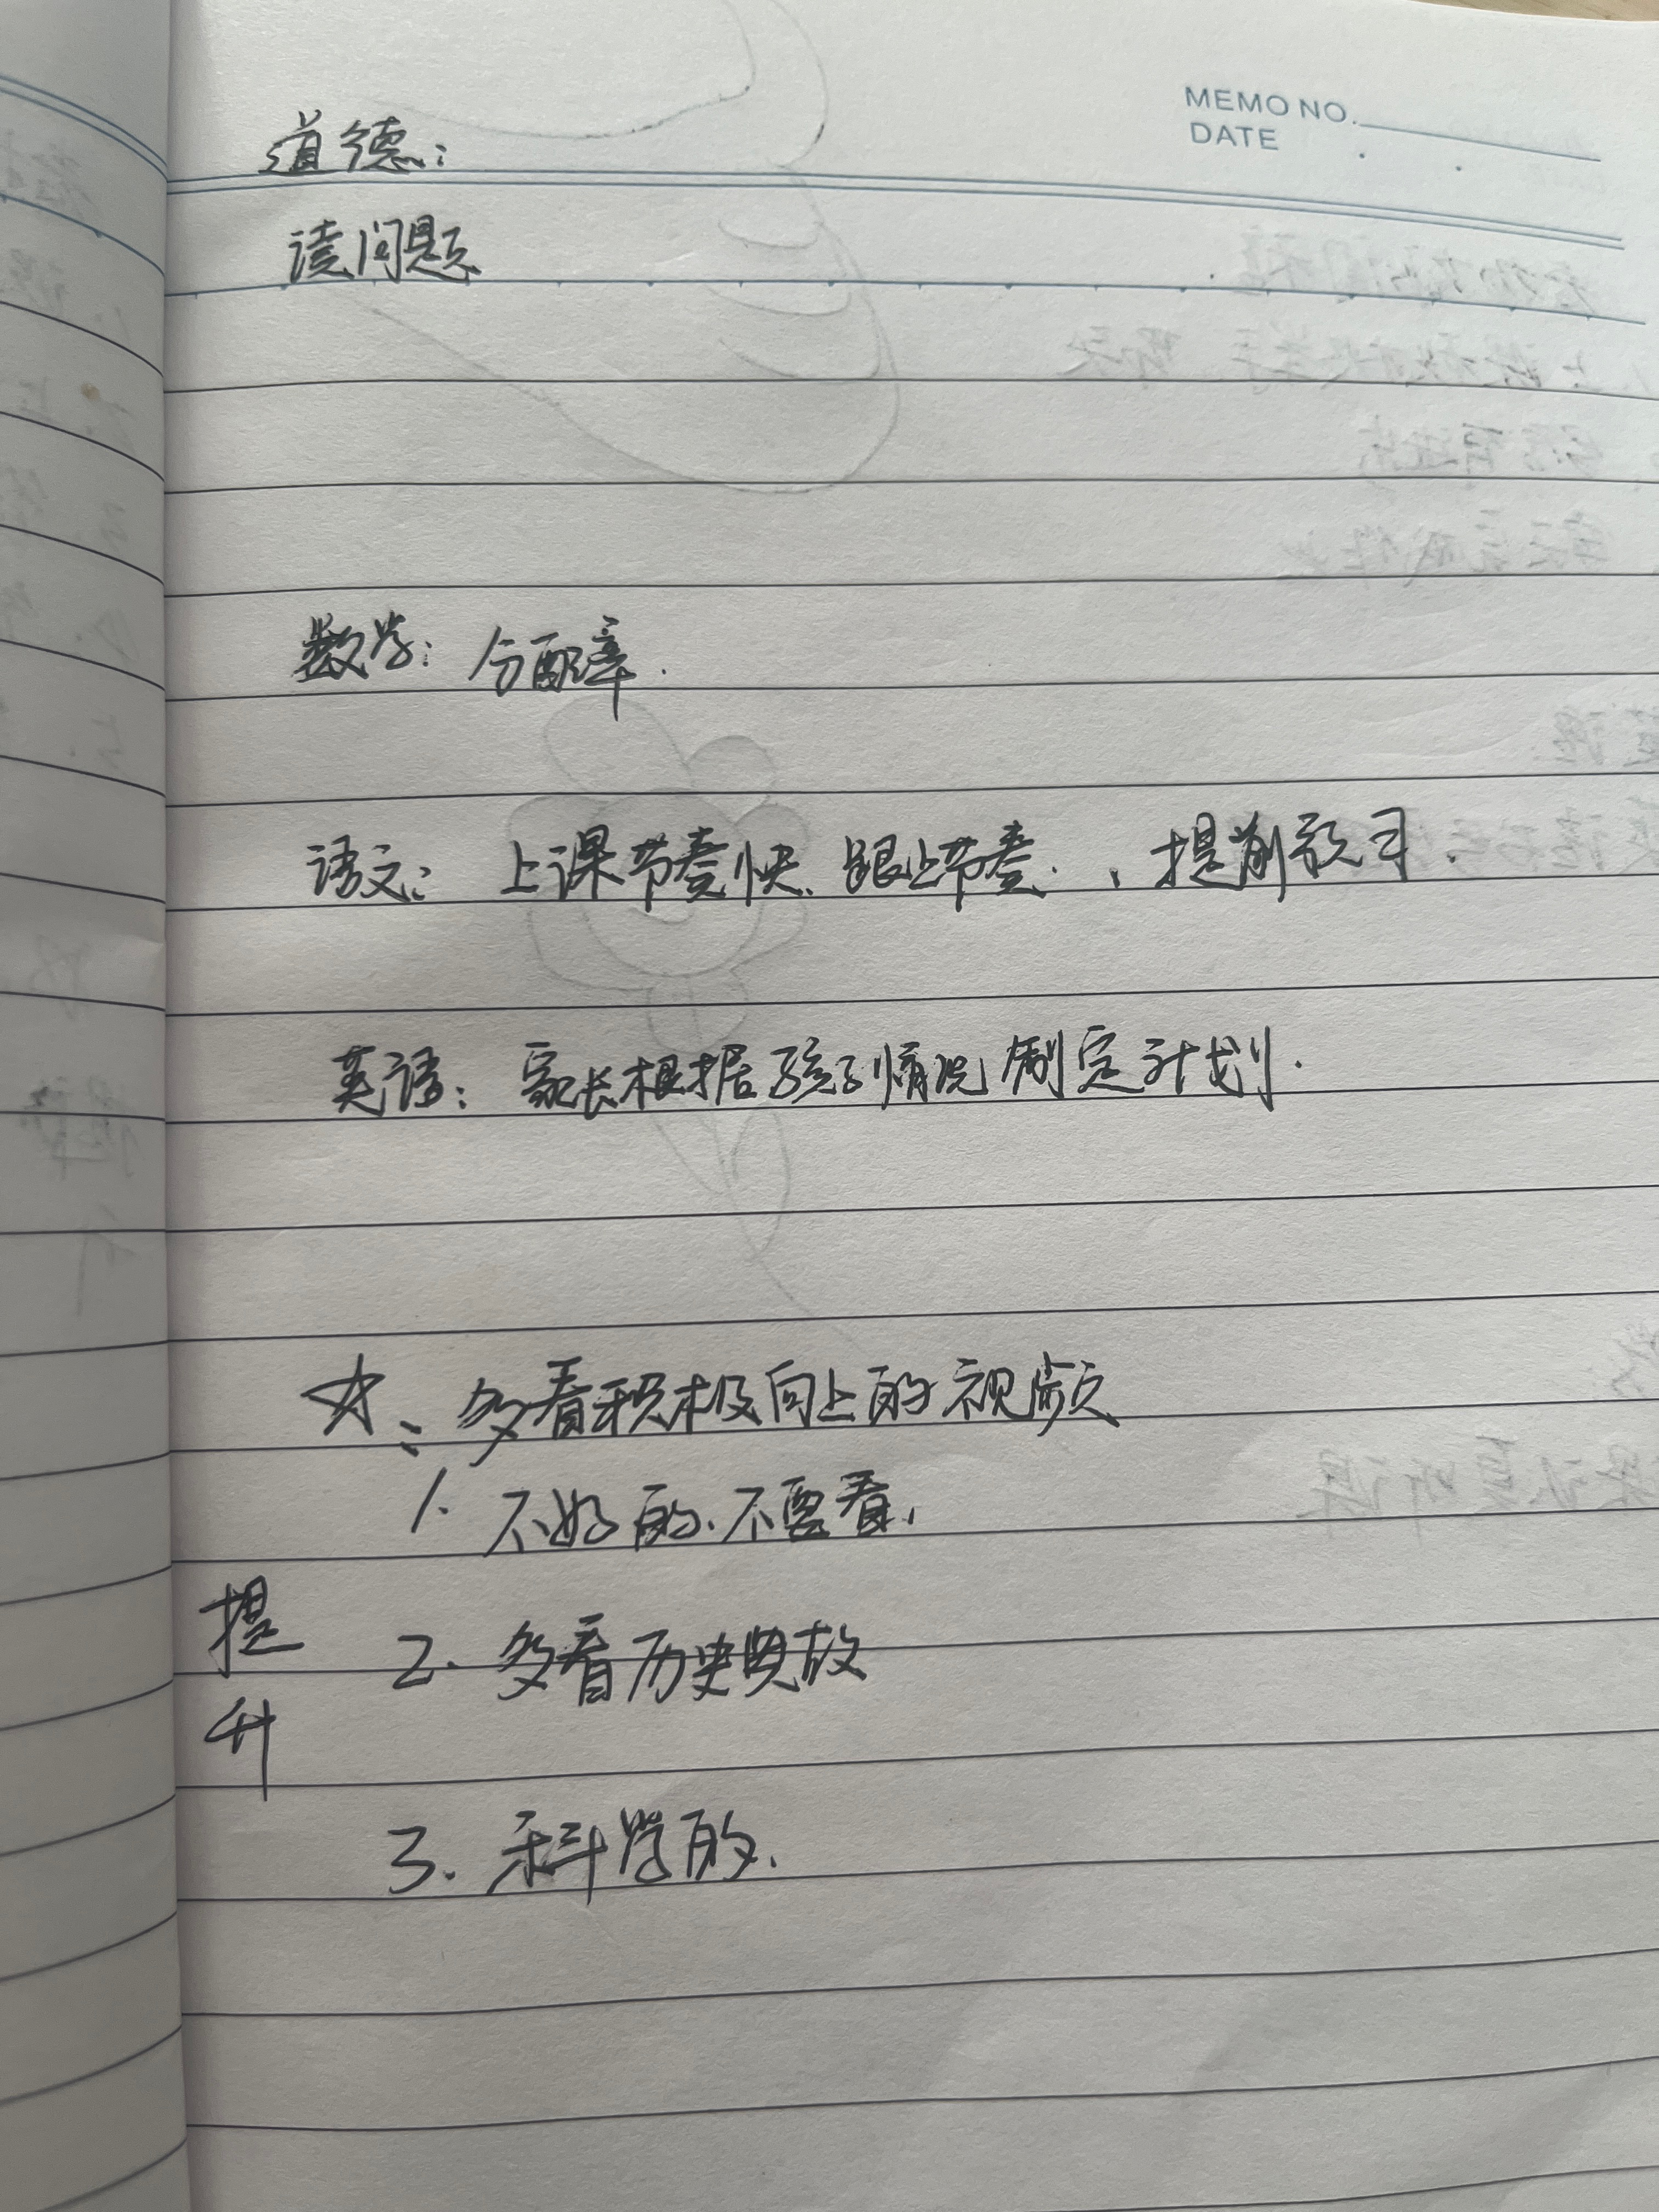 MEMO NO.
DATE
道德：
读问题
数学：分配率.
语文：上课节奏快、跟上节奏.、提前预习.
英语：家长根据孩子情况制定计划.
☆：多看积极向上的视频
1. 不好的、不要看.
提升
2. 多看历史典故
3. 科学的.